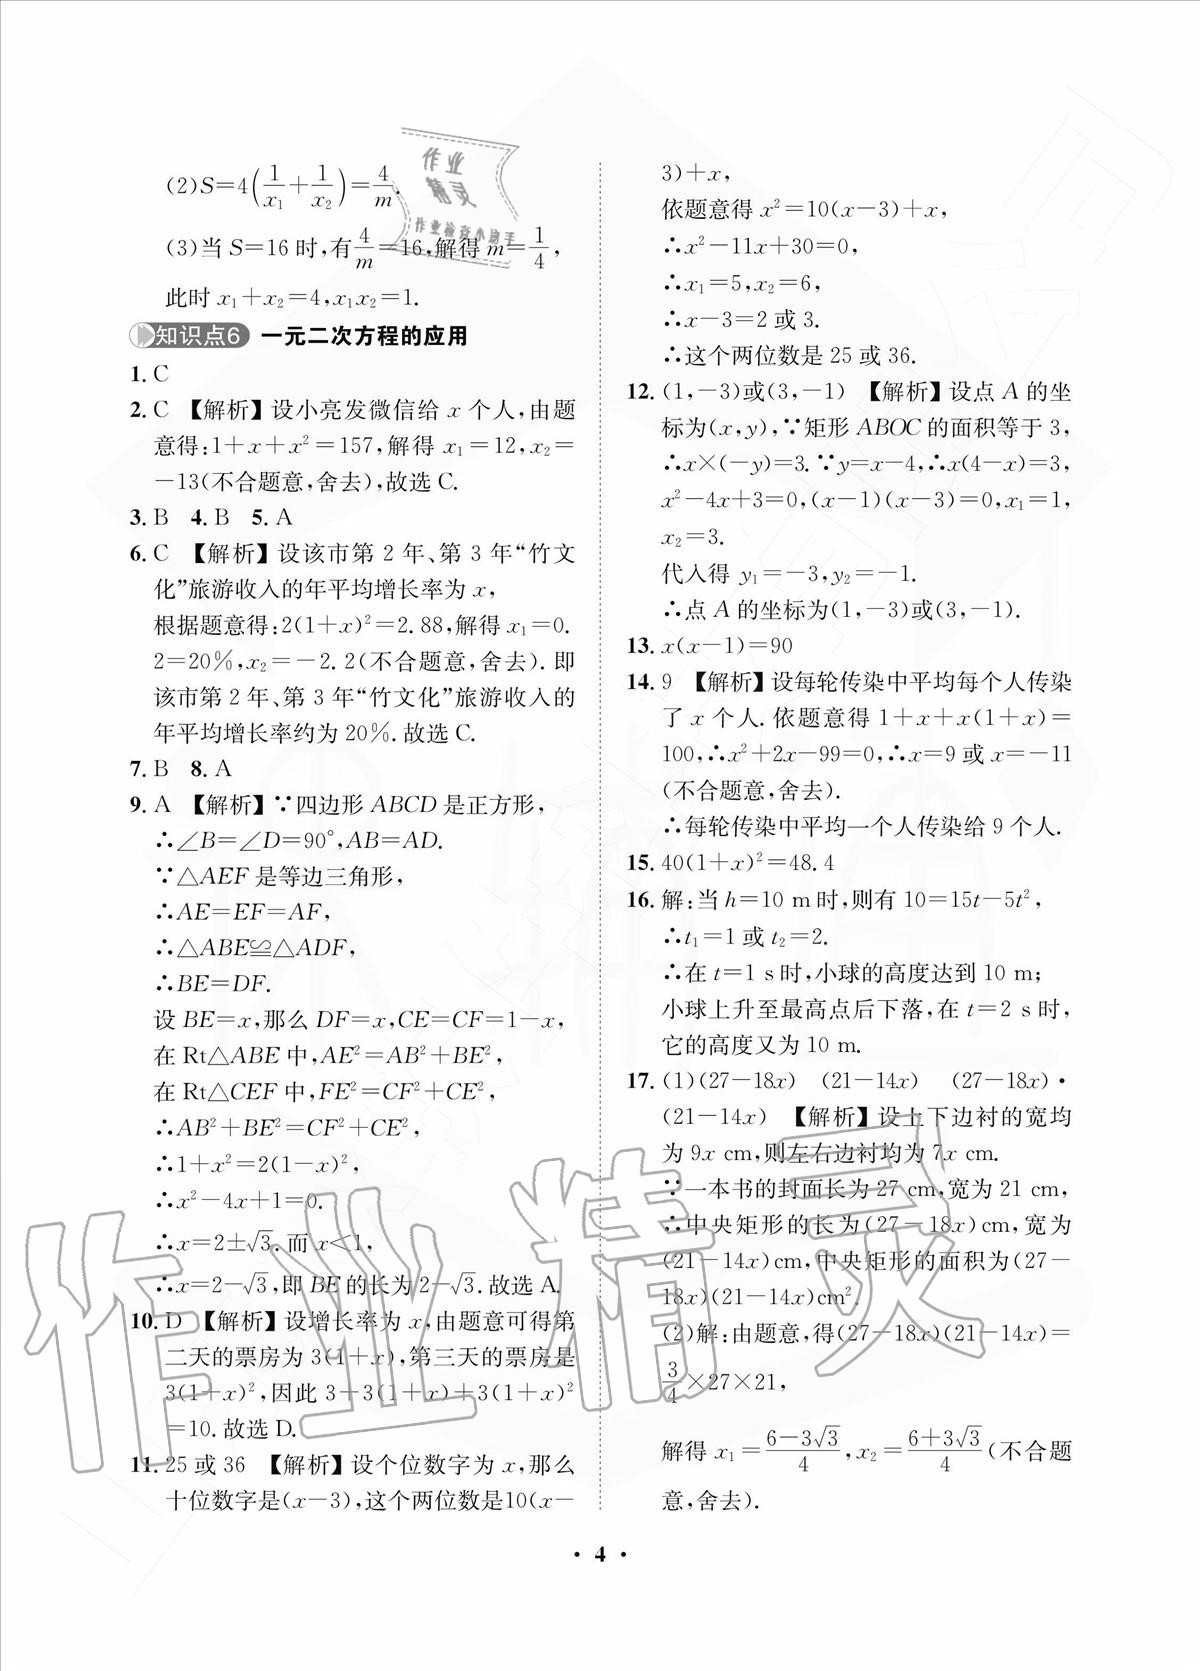 (2)S=4(1/x₁+1/x₂)=4/m.
(3)当 S=16 时,有4/m=16,解得 m=1/4,
此时 x₁+x₂=4,x₁x₂=1.
知识点6 一元二次方程的应用
1. C
2. C 【解析】设小亮发微信给 x 个人,由题
意得:1+x+x²=157,解得 x₁=12,x₂=
-13(不合题意,舍去),故选C.
3. B 4. B 5. A
6. C 【解析】设该市第 2 年、第 3 年“竹文
化”旅游收入的年平均增长率为 x,
根据题意得:2(1+x)²=2.88,解得 x₁=0.
2=20%,x₂=-2.2(不合题意,舍去).即
该市第 2 年、第 3 年“竹文化”旅游收入的
年平均增长率约为 20%.故选C.
7. B 8. A
9. A 【解析】∵四边形 ABCD 是正方形,
∴∠B=∠D=90°,AB=AD.
∵△AEF 是等边三角形,
∴AE=EF=AF,
∴△ABE≌△ADF,
∴BE=DF.
设 BE=x,那么 DF=x,CE=CF=1-x,
在 Rt△ABE 中,AE²=AB²+BE²,
在 Rt△CEF 中,FE²=CF²+CE²,
∴AB²+BE²=CF²+CE²,
∴1+x²=2(1-x)²,
∴x²-4x+1=0.
∴x=2±√3.而 x<1,
∴x=2-√3,即 BE 的长为2-√3.故选 A.
10. D 【解析】设增长率为 x,由题意可得第
二天的票房为 3(1+x),第三天的票房是
3(1+x)²,因此 3+3(1+x)+3(1+x)²
=10.故选 D.
11. 25 或 36 【解析】设个位数字为 x,那么
十位数字是(x-3),这个两位数是10(x-
3)+x,
依题意得 x²=10(x-3)+x,
∴x²-11x+30=0,
∴x₁=5,x₂=6,
∴x-3=2 或 3.
∴这个两位数是 25 或 36.
12. (1,-3)或(3,-1) 【解析】设点 A 的坐
标为(x,y),∵矩形 ABOC 的面积等于 3,
∴x×(-y)=3.∵y=x-4,∴x(4-x)=3,
x²-4x+3=0,(x-1)(x-3)=0,x₁=1,
x₂=3.
代入得 y₁=-3,y₂=-1.
∴点 A 的坐标为(1,-3)或(3,-1).
13. x(x-1)=90
14. 9 【解析】设每轮传染中平均每个人传染
了 x 个人.依题意得 1+x+x(1+x)=
100,∴x²+2x-99=0,∴x=9 或 x=-11
(不合题意,舍去).
∴每轮传染中平均一个人传染给 9 个人.
15. 40(1+x)²=48.4
16. 解:当 h=10 m时,则有 10=15t-5t²,
∴t₁=1 或 t₂=2.
∴在 t=1 s时,小球的高度达到 10 m;
小球上升至最高点后下落,在 t=2 s 时,
它的高度又为 10 m.
17. (1)(27-18x) (21-14x) (27-18x)·
(21-14x) 【解析】设上下边衬的宽均
为 9x cm,则左右边衬均为 7x cm.
∵一本书的封面长为 27 cm,宽为 21 cm,
∴中央矩形的长为(27-18x)cm,宽为
(21-14x)cm,中央矩形的面积为(27-
18x)(21-14x)cm².
(2)解:由题意,得(27-18x)(21-14x)=
3/4×27×21,
解得 x₁=(6-3√3)/4,x₂=(6+3√3)/4(不合题
意,舍去).
· 4 ·
作业
精灵
作业检查小助手
作业精灵